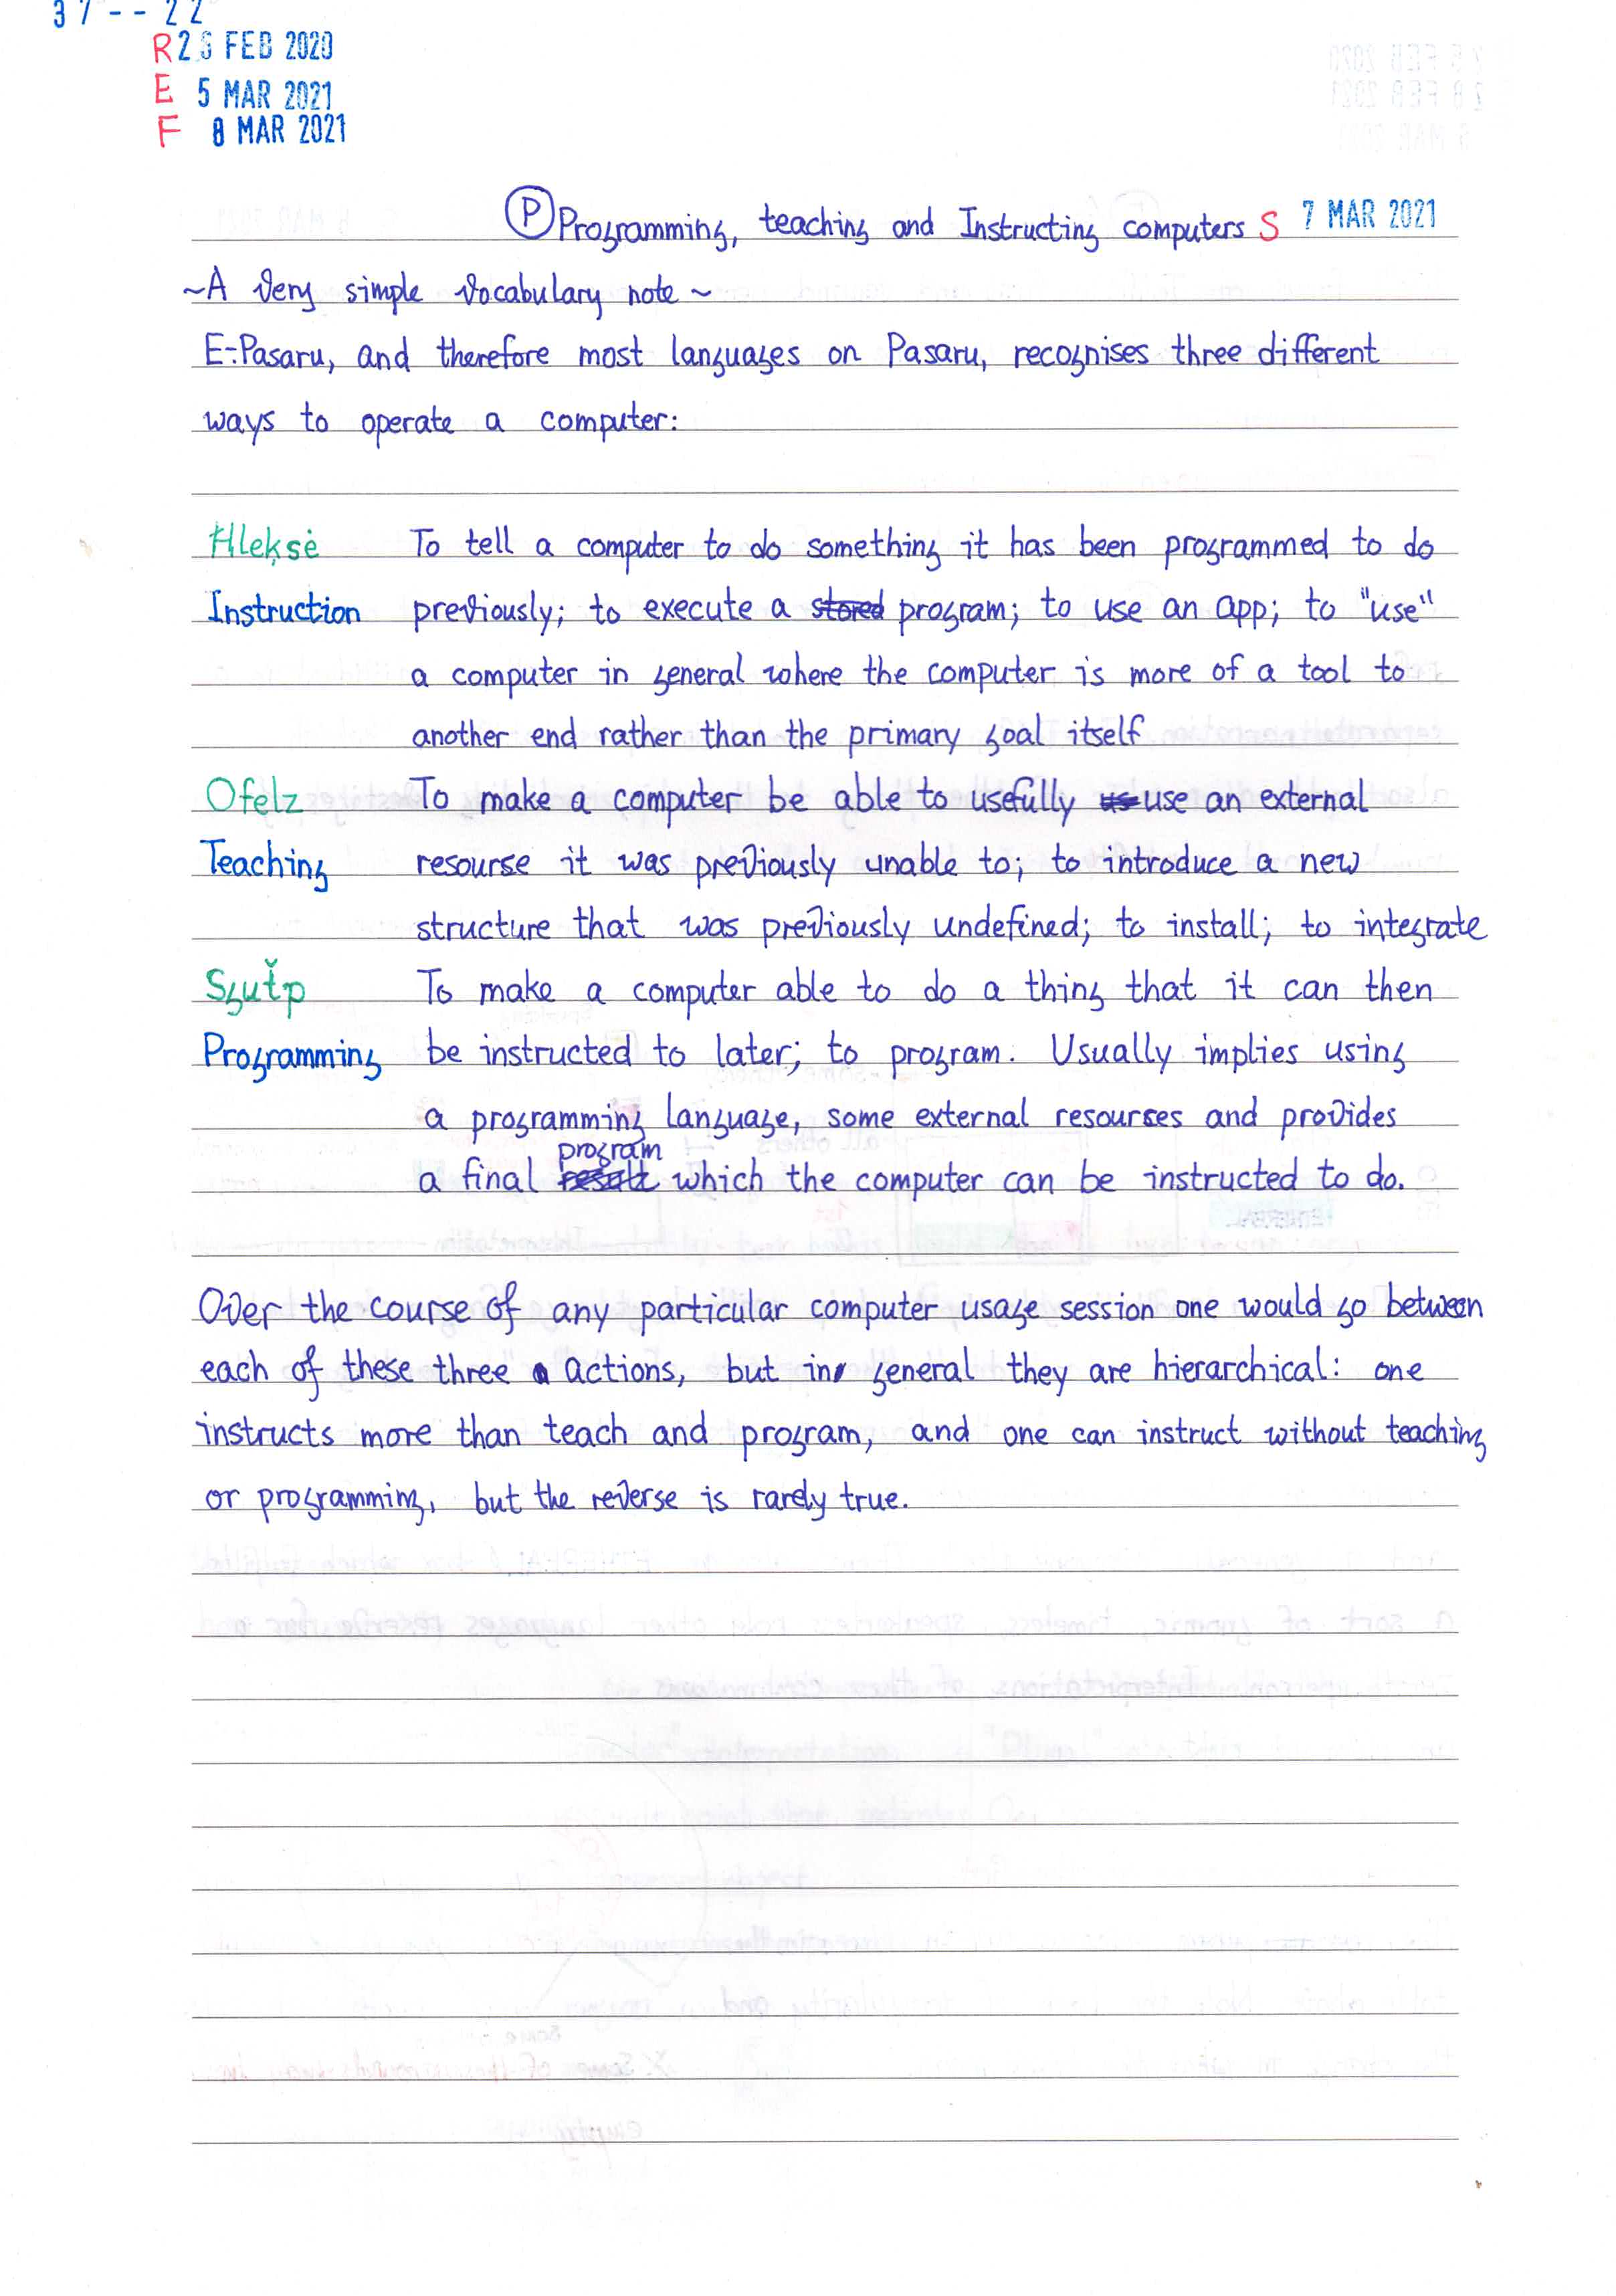 37--22
R 26 FEB 2020
E 5 MAR 2021
F 8 MAR 2021
Ⓟ Programming, teaching and Instructing computers S 7 MAR 2021
~A very simple vocabulary note~
E-Pasaru, and therefore most languages on Pasaru, recognises three different
ways to operate a computer:
Hlekşė To tell a computer to do something it has been programmed to do
Instruction previously; to execute a stored program; to use an app; to "use"
a computer in general where the computer is more of a tool to
another end rather than the primary goal itself
Ofelz To make a computer be able to usefully us use an external
Teaching resourse it was previously unable to; to introduce a new
structure that was previously undefined; to install; to integrate
Sguťp To make a computer able to do a thing that it can then
Programming be instructed to later; to program. Usually implies using
a programming language, some external resourses and provides
program
a final result which the computer can be instructed to do.
Over the course of any particular computer usage session one would go between
each of these three actions, but in general they are hierarchical: one
instructs more than teach and program, and one can instruct without teaching
or programming, but the reverse is rarely true.